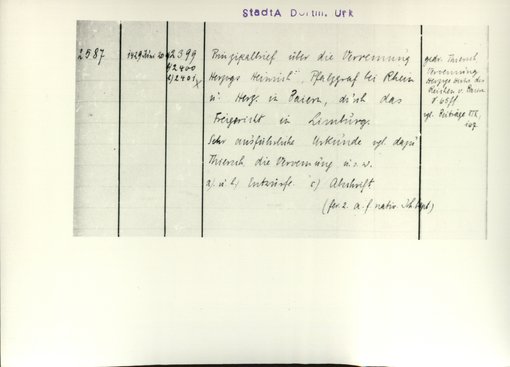 StadtA Dortm. Urk
2587
1429 Jan. 20
2399
2400
2401
Prinzipalbrief über die Vervemung
Herzogs Heinrich, Pfalzgraf bei Rhein
u. Herz. in Baiern, durch das
Freigericht in Limburg.
Sehr ausführliche Urkunde vgl. dazu
Thiersch die Vervemung u.s.w.
a) u. b) Entwürfe c) Abschrift
gedr. Thiersch
Vervemung
Herzogs Heinr. des
Reichen v. Baiern
vgl. Beiträge III,